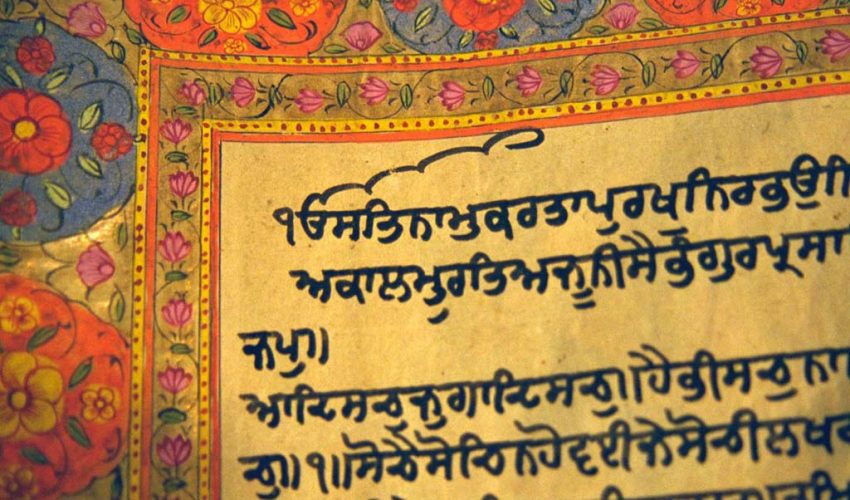 ੴਸਤਿਨਾਮੁਕਰਤਾਪੁਰਖੁਨਿਰਭਉ
ਅਕਾਲਮੂਰਤਿਅਜੂਨੀਸੈਭੰਗੁਰਪ੍ਰਸਾ
ਜਪੁ॥
ਆਦਿਸਚੁਜੁਗਾਦਿਸਚੁ॥ਹੈਭੀਸਚੁਨਾ
ਚੁ॥੧॥ਸੋਚੈਸੋਚਿਨਹੋਵਈਜੇਸੋਚੀਲਖਵ